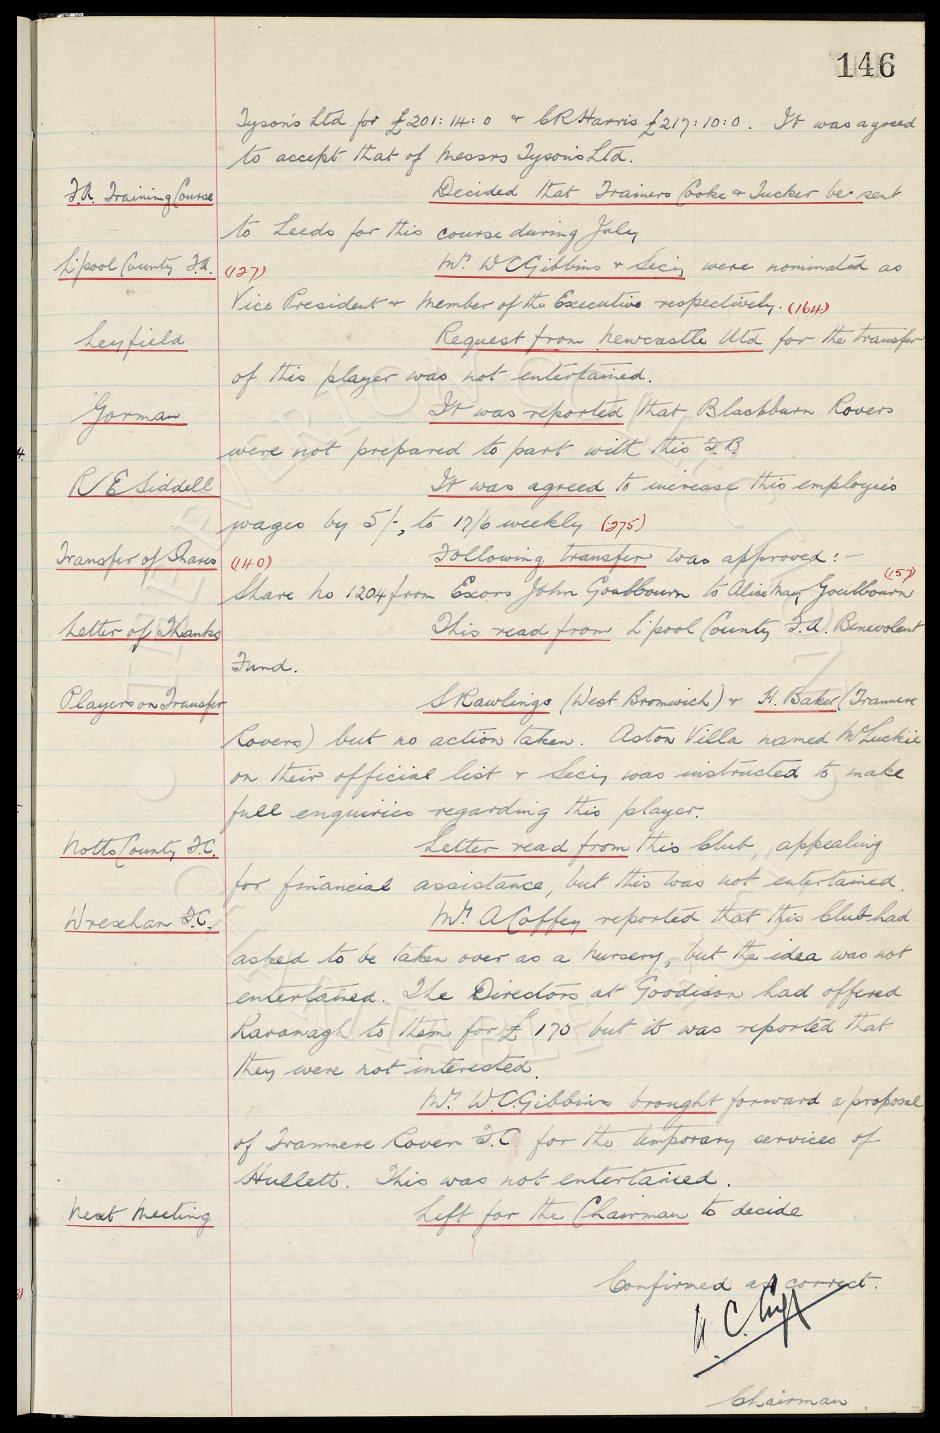 146
Tyson's Ltd for £201:14:0 & C R Harris £217:10:0. It was agreed
to accept that of Messrs Tyson's Ltd.
F.A. Training Course Decided that Trainers Cooke & Tucker be sent
to Leeds for this course during July
L'pool County F.A. (127) Mr. W C Gibbins & Secy were nominated as
Vice President & Member of the Executive respectively. (164)
Leyfield Request from Newcastle Utd for the transfer
of this player was not entertained.
Gorman It was reported that Blackburn Rovers
were not prepared to part with this F.B.
R E Siddell It was agreed to increase this employee's
wages by 5/-, to 17/6 weekly (275)
Transfer of Shares (140) Following transfer was approved:-
Share No 1204 from Excors John Goulbourn to Alice May Goulbourn (157)
Letter of Thanks This read from L'pool County F.A. Benevolent
Fund.
Players on Transfer S Rawlings (West Bromwich) & H. Baker (Tranmere
Rovers) but no action taken. Aston Villa named McLuckie
on their official list & Secy was instructed to make
full enquiries regarding this player.
Notts County F.C. Letter read from this Club, appealing
for financial assistance, but this was not entertained.
Wrexham F.C. Mr. A Coffey reported that this Club had
asked to be taken over as a nursery, but the idea was not
entertained. The Directors at Goodison had offered
Kavanagh to them for £170 but it was reported that
they were not interested.
Mr. W.C. Gibbins brought forward a proposal
of Tranmere Rovers F.C. for the temporary services of
Hullett. This was not entertained.
Next Meeting Left for the Chairman to decide
Confirmed as correct.
W. C. Cuff
Chairman.